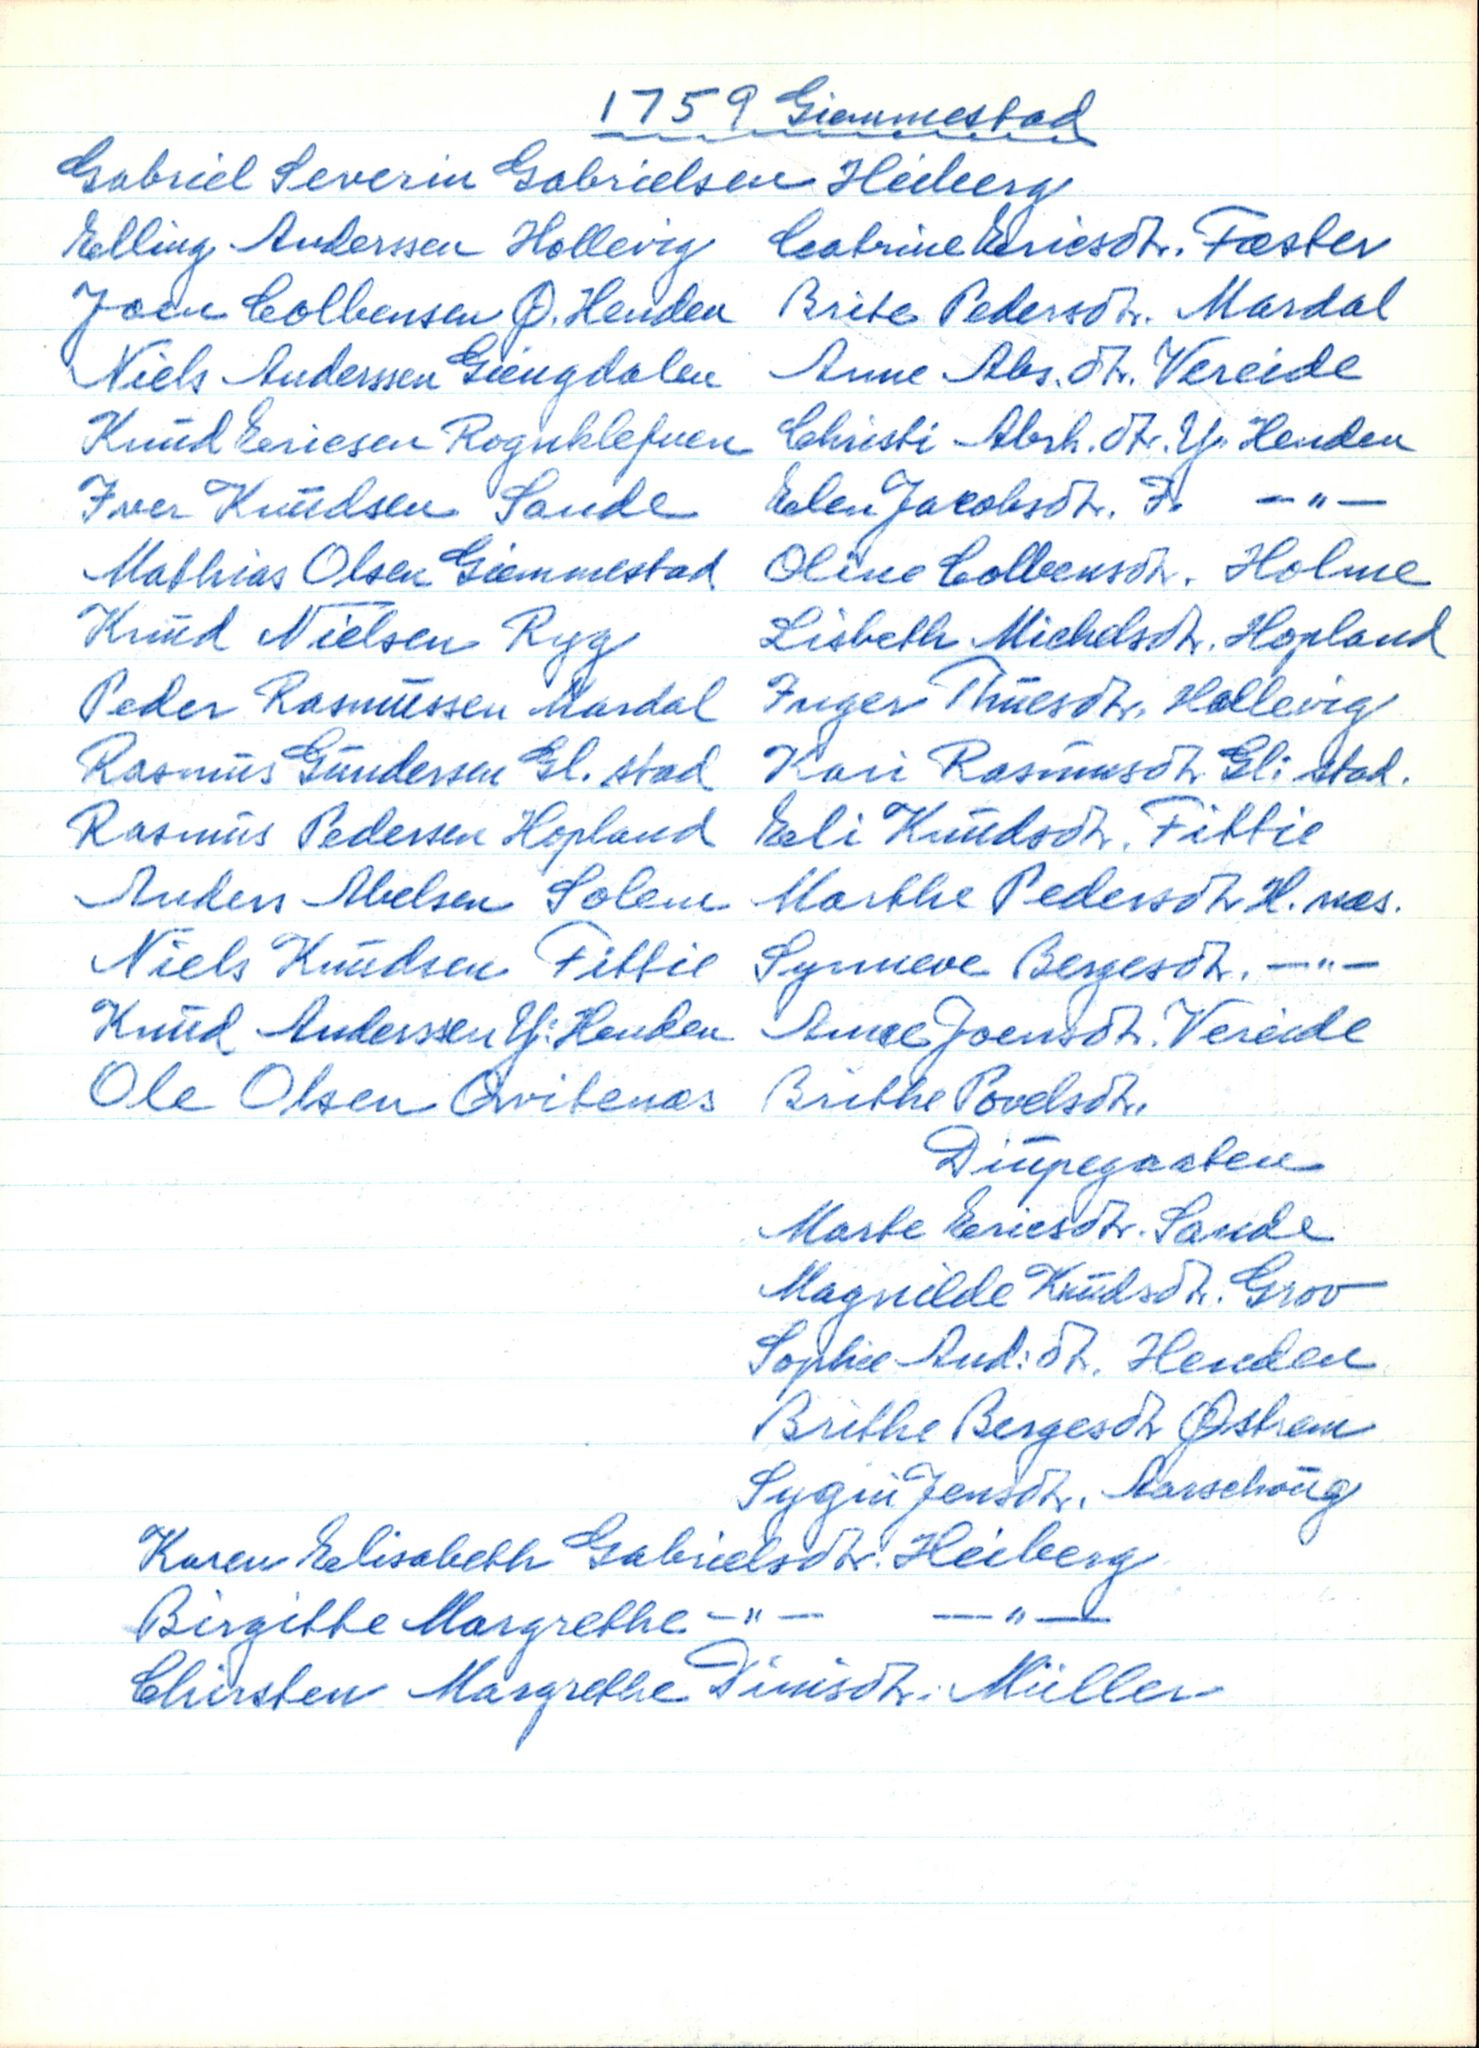 1759 Giemmestad
Gabriel Severin Gabrielsen Heiberg
Elling Anderssen Hollevig Catrine Ericsdtr. Fæster
Joen Colbensen Ø. Henden Brite Pedersdtr. Mardal
Niels Anderssen Giengdalen Anne Abs.dtr. Vereide
Knud Ericsen Rognklefuen Christi Abrh.dtr. Y. Henden
Iver Knudsen Sande Elen Jacobsdtr. I. —"—
Mathias Olsen Giemmestad Oline Colbensdtr. Holme
Knud Nielsen Ryg Lisbeth Michelsdtr. Hopland
Peder Rasmussen Mardal Inger Thuesdtr. Hollevig
Rasmus Gundersen Gl. stad Kari Rasmusdtr Gl: stad.
Rasmus Pedersen Hopland Eli Knudsdtr. Fittie
Anders Abelsen Solem Marthe Pedersdtr H. næs.
Niels Knudsen Fittie Synneve Bergesdtr. —"—
Knud Anderssen Y: Henden Anne Joensdtr. Vereide
Ole Olsen Qvitenæs Brithe Povelsdtr.
Diupegaaten
Marte Ericsdtr. Sande
Magnilde Knudsdtr. Grov
Sophie And:dtr. Henden
Brithe Bergesdtr Østrem
Sygni Jensdtr. Aarschoug
Karen Elisabeth Gabrielsdtr. Heiberg
Birgitte Margrethe —"— —"—
Chirsten Margrethe Müller